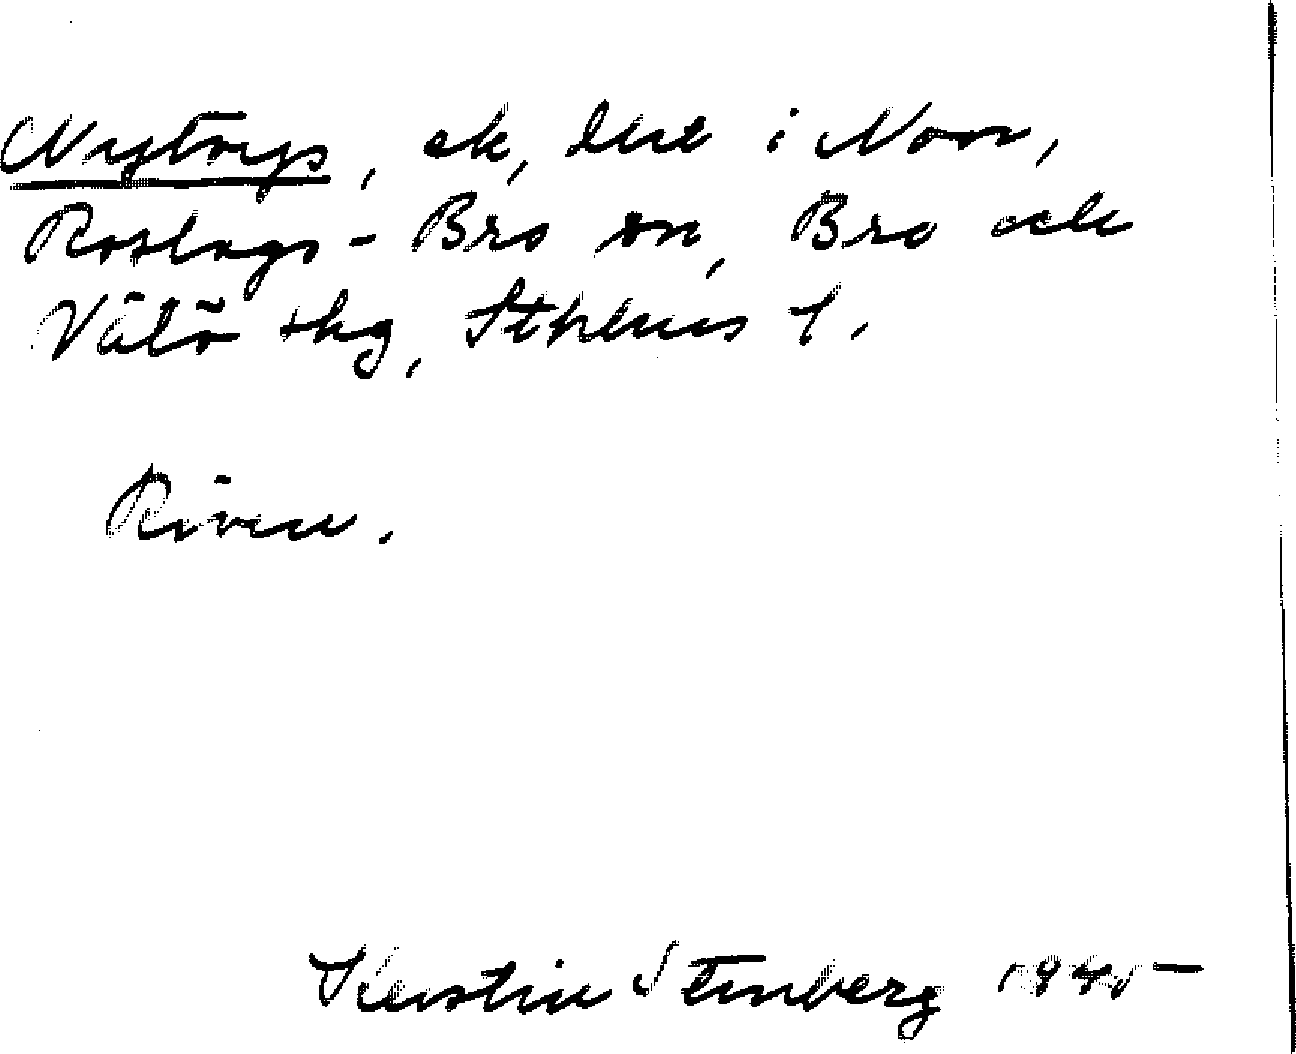 Nytorp, ek, lht i Norr,
Roslags-Bro sn, Bro och
Vätö skg, Sthlms l.
Riven.
Kerstin Stenberg 1945